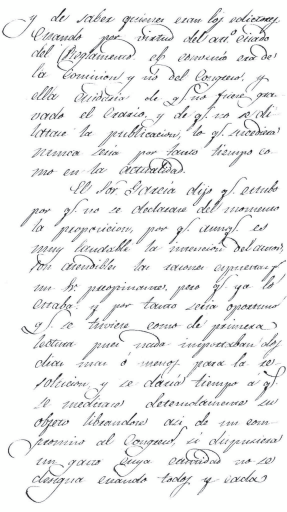 y de saber quienes eran los editores,
Cuando por virtud del art.º citado
del Reglamento, el convenio era de
la Comision y no del Congreso, y
ella cuidaria de q.e no fuese gra-
vado el Erario y de q.e no se di-
latase la publicacion, lo q.e sucederia
nunca seria por tanto tiempo co-
mo en la actualidad.
El Sor Garcia dijo q.e estubo
por q.e no se declarase del momento
la proposicion, por q.e aunq.e es
muy laudable la intencion del autor,
son atendibles las razones expuestas p.r
un Sr. preopinante, pero q.e ya lo
estaba, y por tanto seria oportuno
q.e se tuviese como de primera
lectura pues nada importaban dos
dias mas ó menos para la re-
solucion, y se daria tiempo a q.e
se meditase detenidamente su
objeto librandose asi de un com-
promiso al Congreso, si dispusiera
un gasto cuya cantidad no se
designa cuando todos y cada